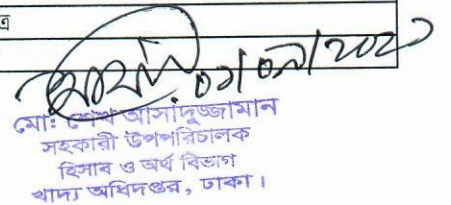 ত্র
মো: শেখ আসাদুজ্জামান
সহকারী উপপরিচালক
হিসাব ও অর্থ বিভাগ
খাদ্য অধিদপ্তর, ঢাকা।